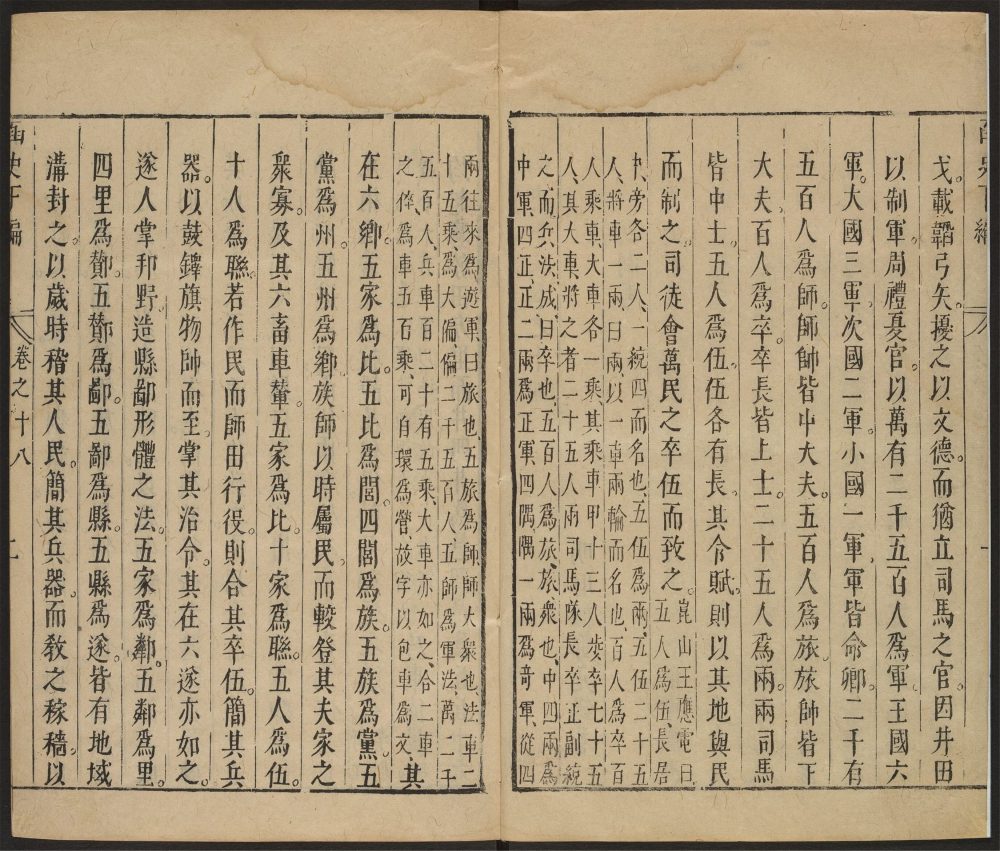 戈。載韜弓矢。擾之以文德。而猶立司馬之官。因井田
以制軍。周禮憂官。以萬有二千五百人爲軍。王國六
軍。大國三軍。次國二軍。小國一軍。軍皆命卿。二千有
五百人爲師。師帥皆中大夫。五百人爲旅。旅帥皆下
大夫。百人爲卒。卒長皆上士。二十五人爲兩。兩司馬
皆中士。五人爲伍。伍各有長。其令賦。則以其地與民
而制之。司徒會萬民之卒伍而致之。
崑山王應電曰
五人爲伍長居
中、旁各二人、一統四而名也、五伍爲兩、五伍二十五
人、將車一兩、曰兩以一車兩輪而名也、百人爲卒百
人乘車、大車各一乘、其乘車甲十三人步卒七十五
人、其大車、將之者二十五人兩司馬隊長卒正副統
之、而兵法成、曰卒也、五百人爲旅、旅衆也、中四兩爲
中軍、四正、正二兩爲正軍、四隅、隅一兩爲奇軍、從四
兩往來爲遊軍、曰旅也、五旅爲師、師大衆也、法車二
十五乘、爲大偏、偏二千五百人、五師爲軍法、萬二千
五百人、兵車百二十有五乘、大車亦如之、合二車
之倅、爲車五百乘、可自環爲營、故字以包車爲文、
其
在六鄉。五家爲比。五比爲閭。四閭爲族。五族爲黨。五
黨爲州。五州爲鄉。族師以時屬民。而較登其夫家之
衆寡。及其六畜車輦。五家爲比。十家爲聯。五人爲伍。
十人爲聯。若作民而師田行役。則合其卒伍。簡其兵
器。以鼓鐸旗物帥而至。掌其治令。其在六遂亦如之。
遂人掌邦野。造縣鄙形體之法。五家爲鄰。五鄰爲里。
四里爲酇。五酇爲鄙。五鄙爲縣。五縣爲遂。皆有地域
溝封之。以歲時稽其人民。簡其兵器。而敎之稼穡。以
卷之十八